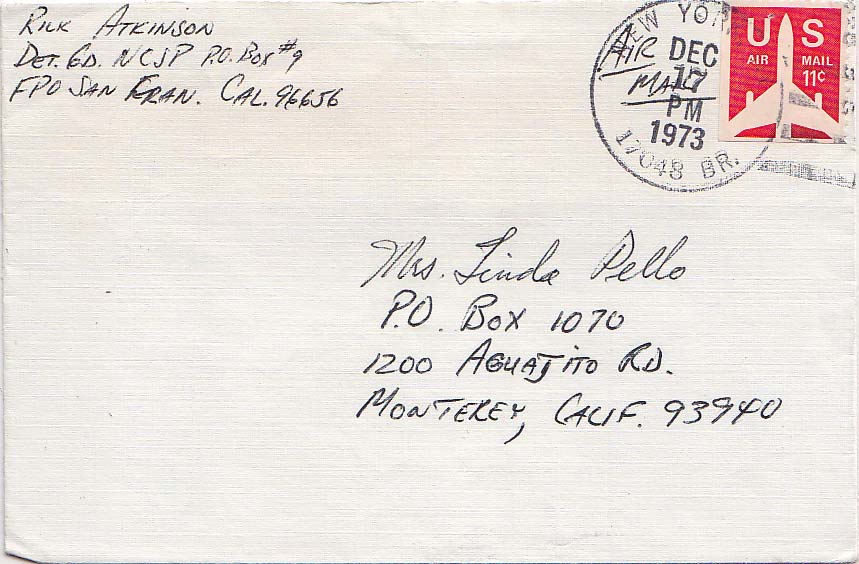 RICK ATKINSON
DET. GD. NCSP P.O. BOX #9
FPO SAN FRAN. CAL. 96656
NEW YOR
AIR MAIL
DEC
17
PM
1973
17048 BR.
US
AIR MAIL
11¢
Mrs. Linda Pello
P.O. BOX 1070
1200 AGUAJITO RD.
MONTEREY, CALIF. 93940